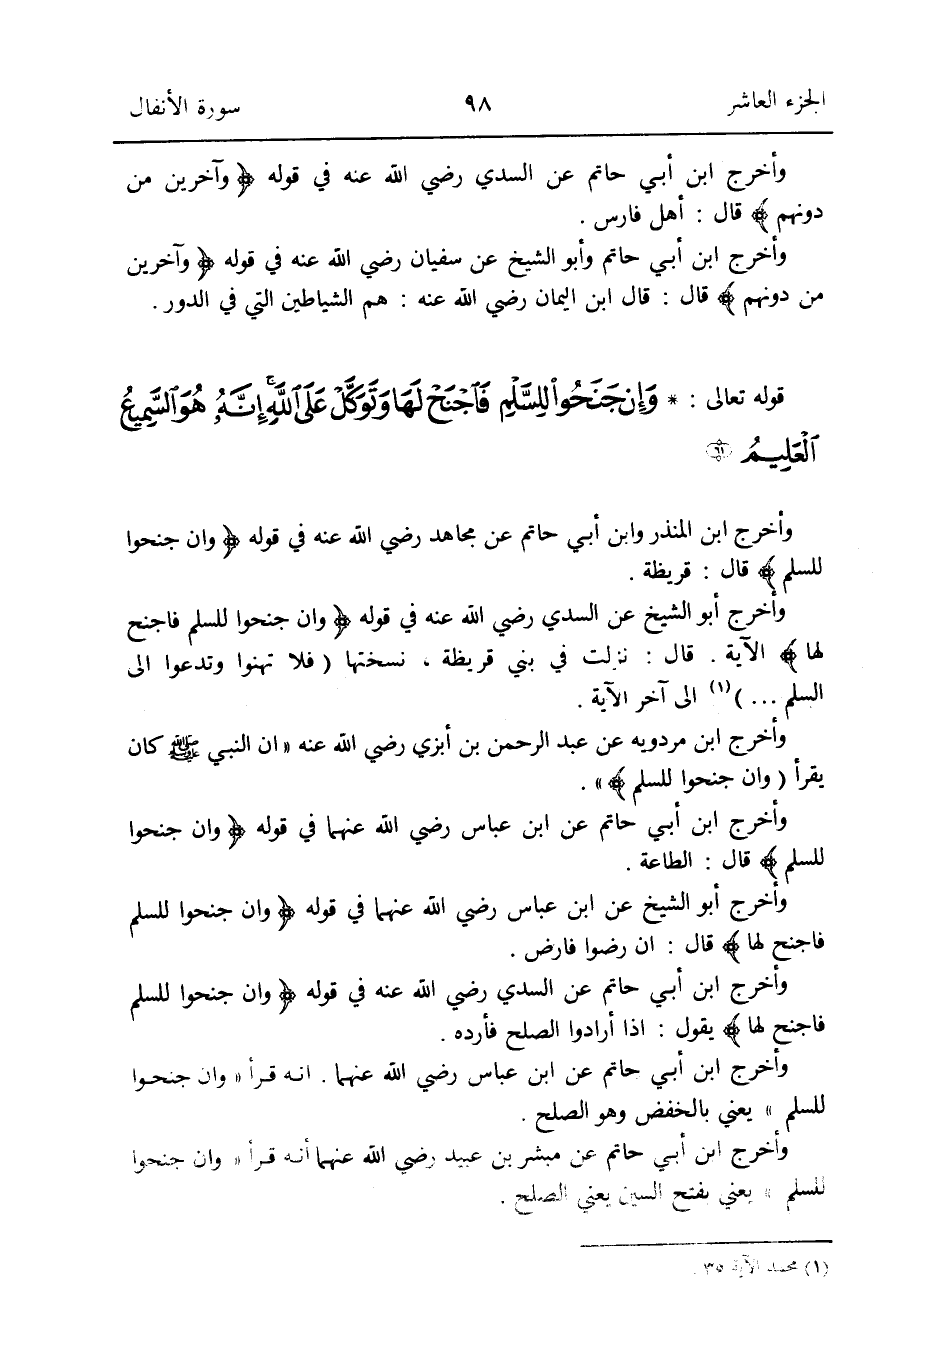 الجزء العاشر ٩٨ سورة الأنفال
وأخرج ابن أبي حاتم عن السدي رضي الله عنه في قوله ﴿ وآخرين من
دونهم ﴾ قال : أهل فارس .
وأخرج ابن أبي حاتم وأبو الشيخ عن سفيان رضي الله عنه في قوله ﴿ وآخرين
من دونهم ﴾ قال : قال ابن اليمان رضي الله عنه : هم الشياطين التي في الدور .
قوله تعالى : * وَإِن جَنَحُواْ لِلسَّلۡمِ فَٱجۡنَحۡ لَهَا وَتَوَكَّلۡ عَلَى ٱللَّهِۚ إِنَّهُۥ هُوَ ٱلسَّمِيعُ
ٱلۡعَلِيمُ ٦١
وأخرج ابن المنذر وابن أبي حاتم عن مجاهد رضي الله عنه في قوله ﴿ وان جنحوا
للسلم ﴾ قال : قريظة .
وأخرج أبو الشيخ عن السدي رضي الله عنه في قوله ﴿ وان جنحوا للسلم فاجنح
لها ﴾ الآية . قال : نزلت في بني قريظة ، نسختها ( فلا تهنوا وتدعوا الى
السلم ... )(١) الى آخر الآية .
وأخرج ابن مردويه عن عبد الرحمن بن أبزي رضي الله عنه « ان النبي ﷺ كان
يقرأ ( وان جنحوا للسلم ﴾ » .
وأخرج ابن أبي حاتم عن ابن عباس رضي الله عنهما في قوله ﴿ وان جنحوا
للسلم ﴾ قال : الطاعة .
وأخرج أبو الشيخ عن ابن عباس رضي الله عنهما في قوله ﴿ وان جنحوا للسلم
فاجنح لها ﴾ قال : ان رضوا فارض .
وأخرج ابن أبي حاتم عن السدي رضي الله عنه في قوله ﴿ وان جنحوا للسلم
فاجنح لها ﴾ يقول : اذا أرادوا الصلح فأرده .
وأخرج ابن أبي حاتم عن ابن عباس رضي الله عنهما . انه قرأ « وان جنحوا
للسلم » يعني بالخفض وهو الصلح .
وأخرج ابن أبي حاتم عن مبشر بن عبيد رضي الله عنهما أنه قرأ « وان جنحوا
للسلم » يعني بفتح السين يعني الصلح .
(١) محمد الآية ٣٥ .